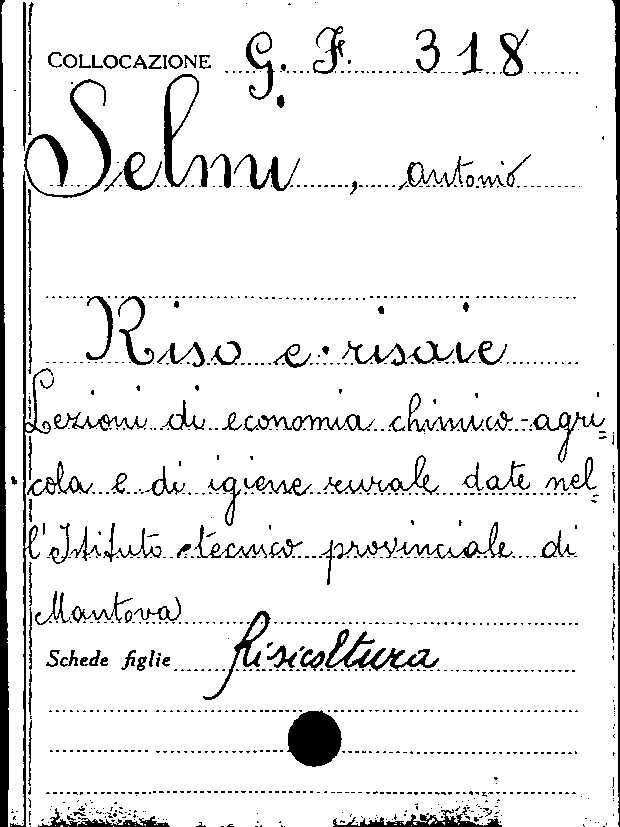 COLLOCAZIONE G. F. 318
Selmi, Antonio
Riso e risaie
Lezioni di economia chimico-agri=
cola e di igiene rurale date nel=
l'Istituto tecnico provinciale di
Mantova
Schede figlie Risicoltura